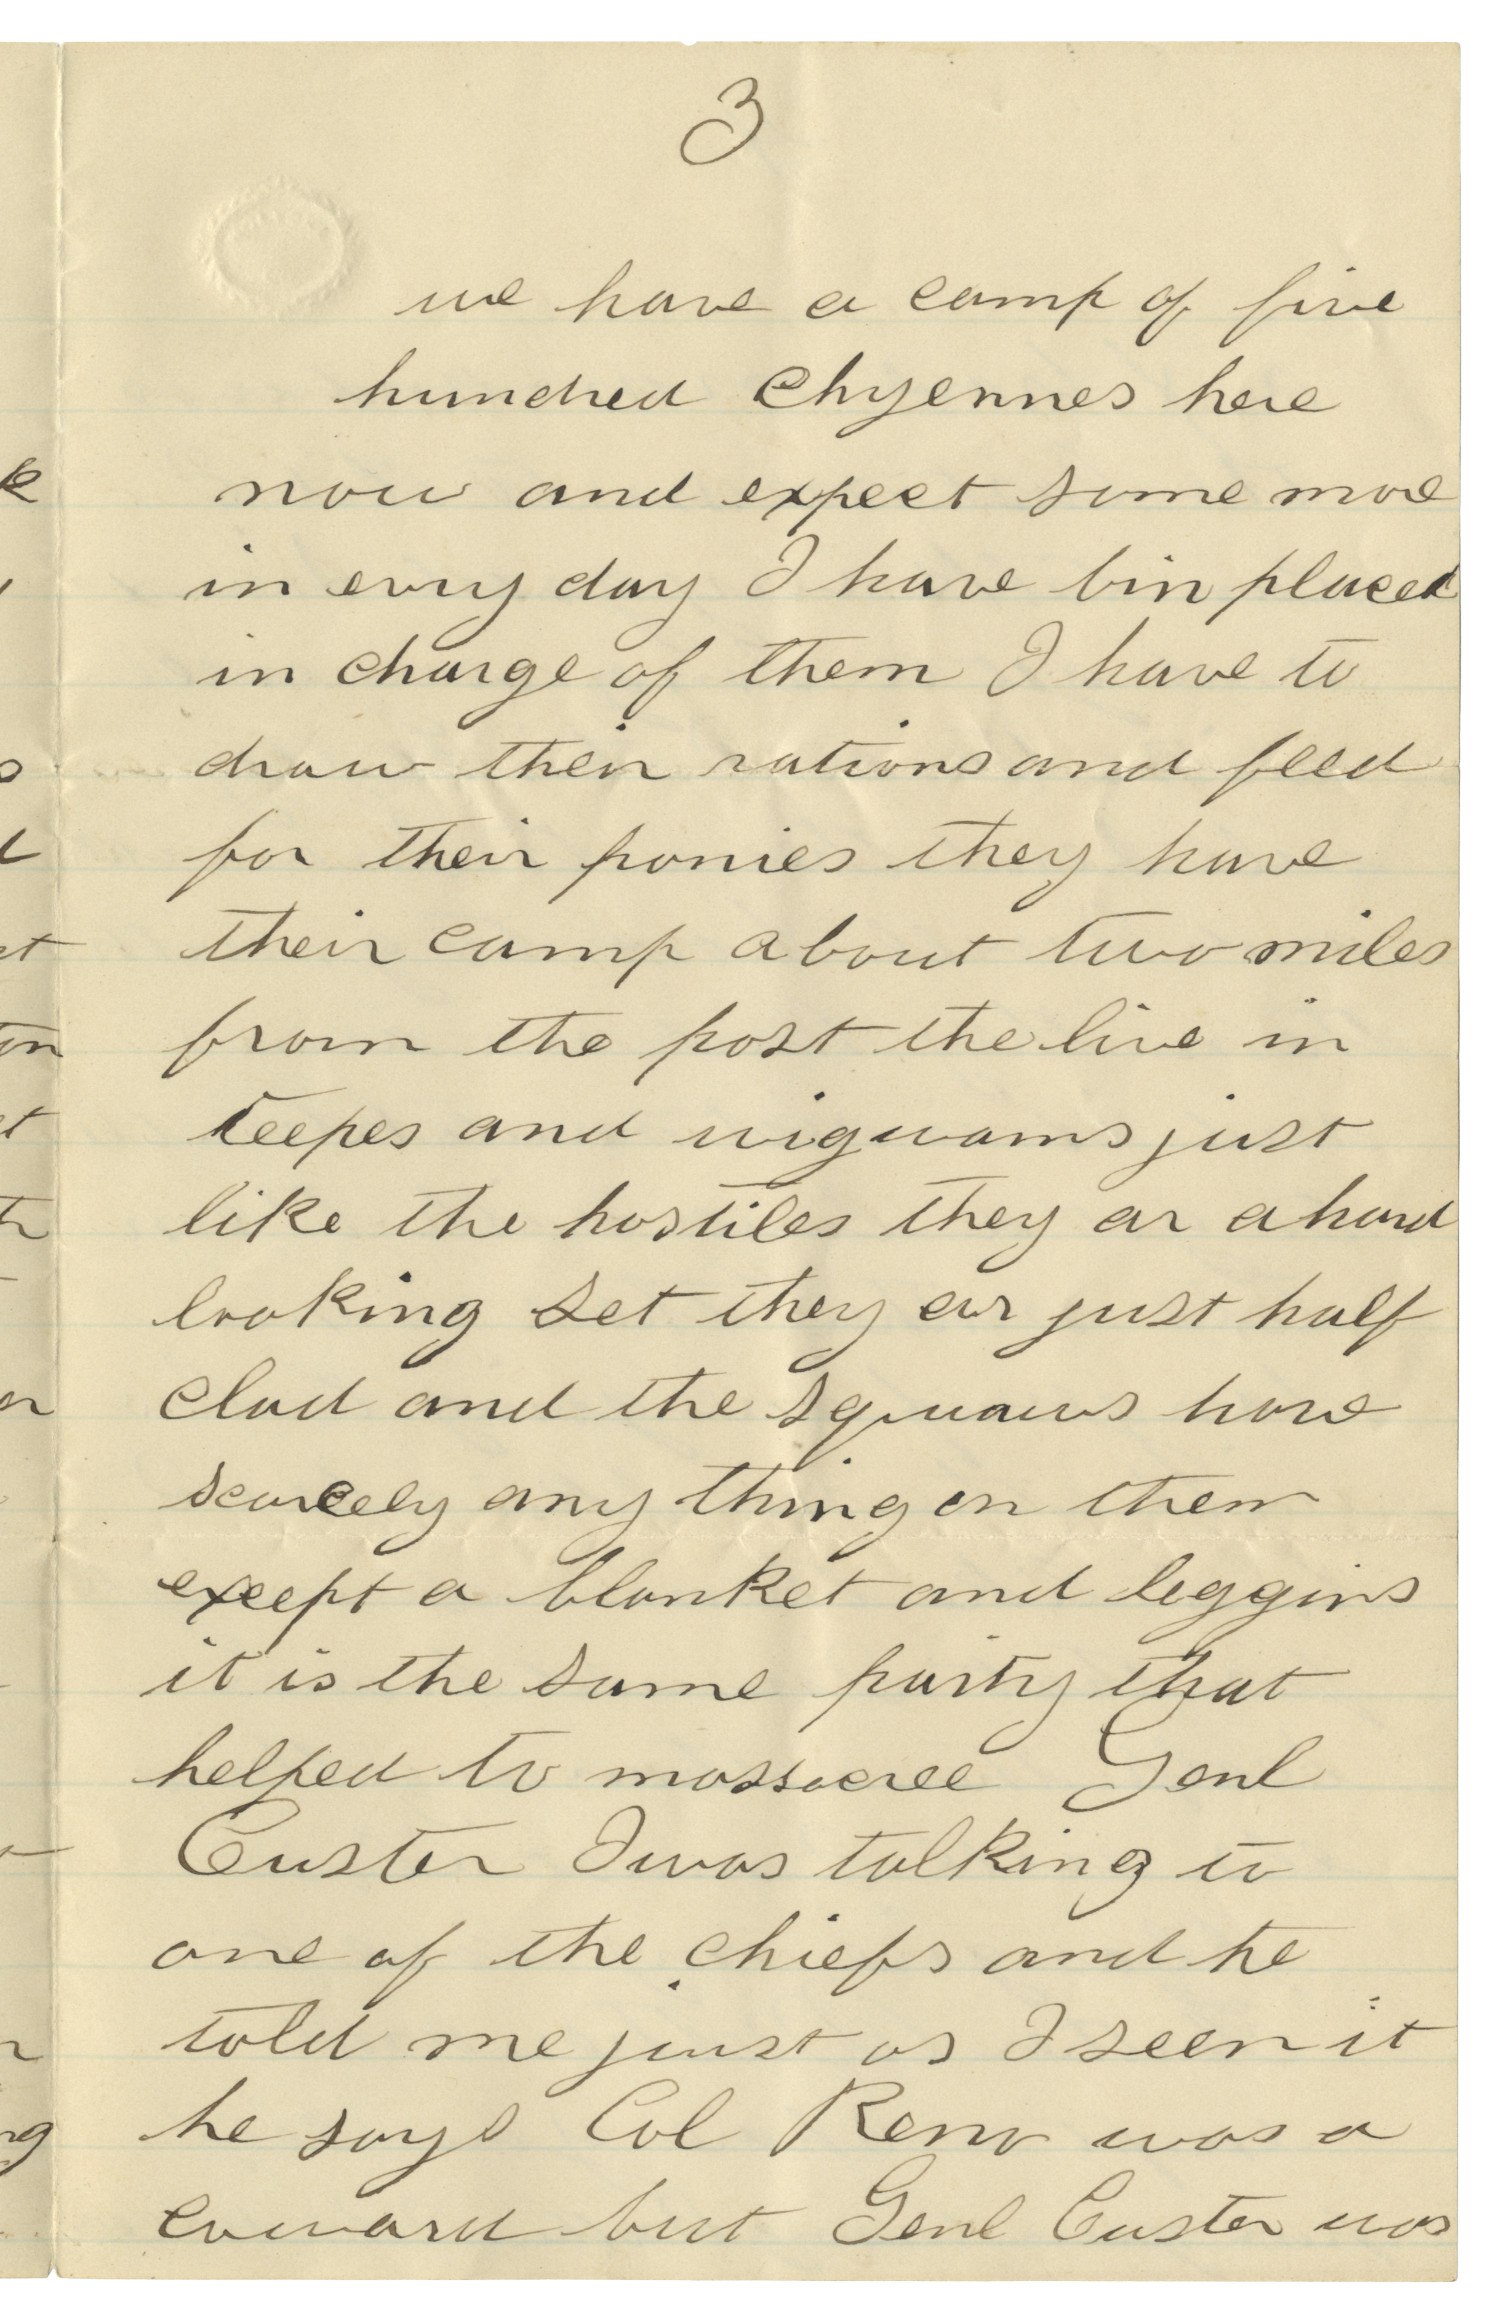 3
we have a camp of five
hundred Chyennes here
now and expect some more
in evry day I have bin placed
in charge of them I have to
draw their rations and feed
for their ponies they have
their camp about two miles
from the post the live in
teepes and wigwams just
like the hostiles they ar a hard
looking set they ar just half
clad and the squaws have
scarcely any thing on them
except a blanket and leggins
it is the same party that
helped to massacree Genl
Custer I was talking to
one of the chiefs and he
told me just as I seen it
he says Col Reno was a
coward but Genl Custer was